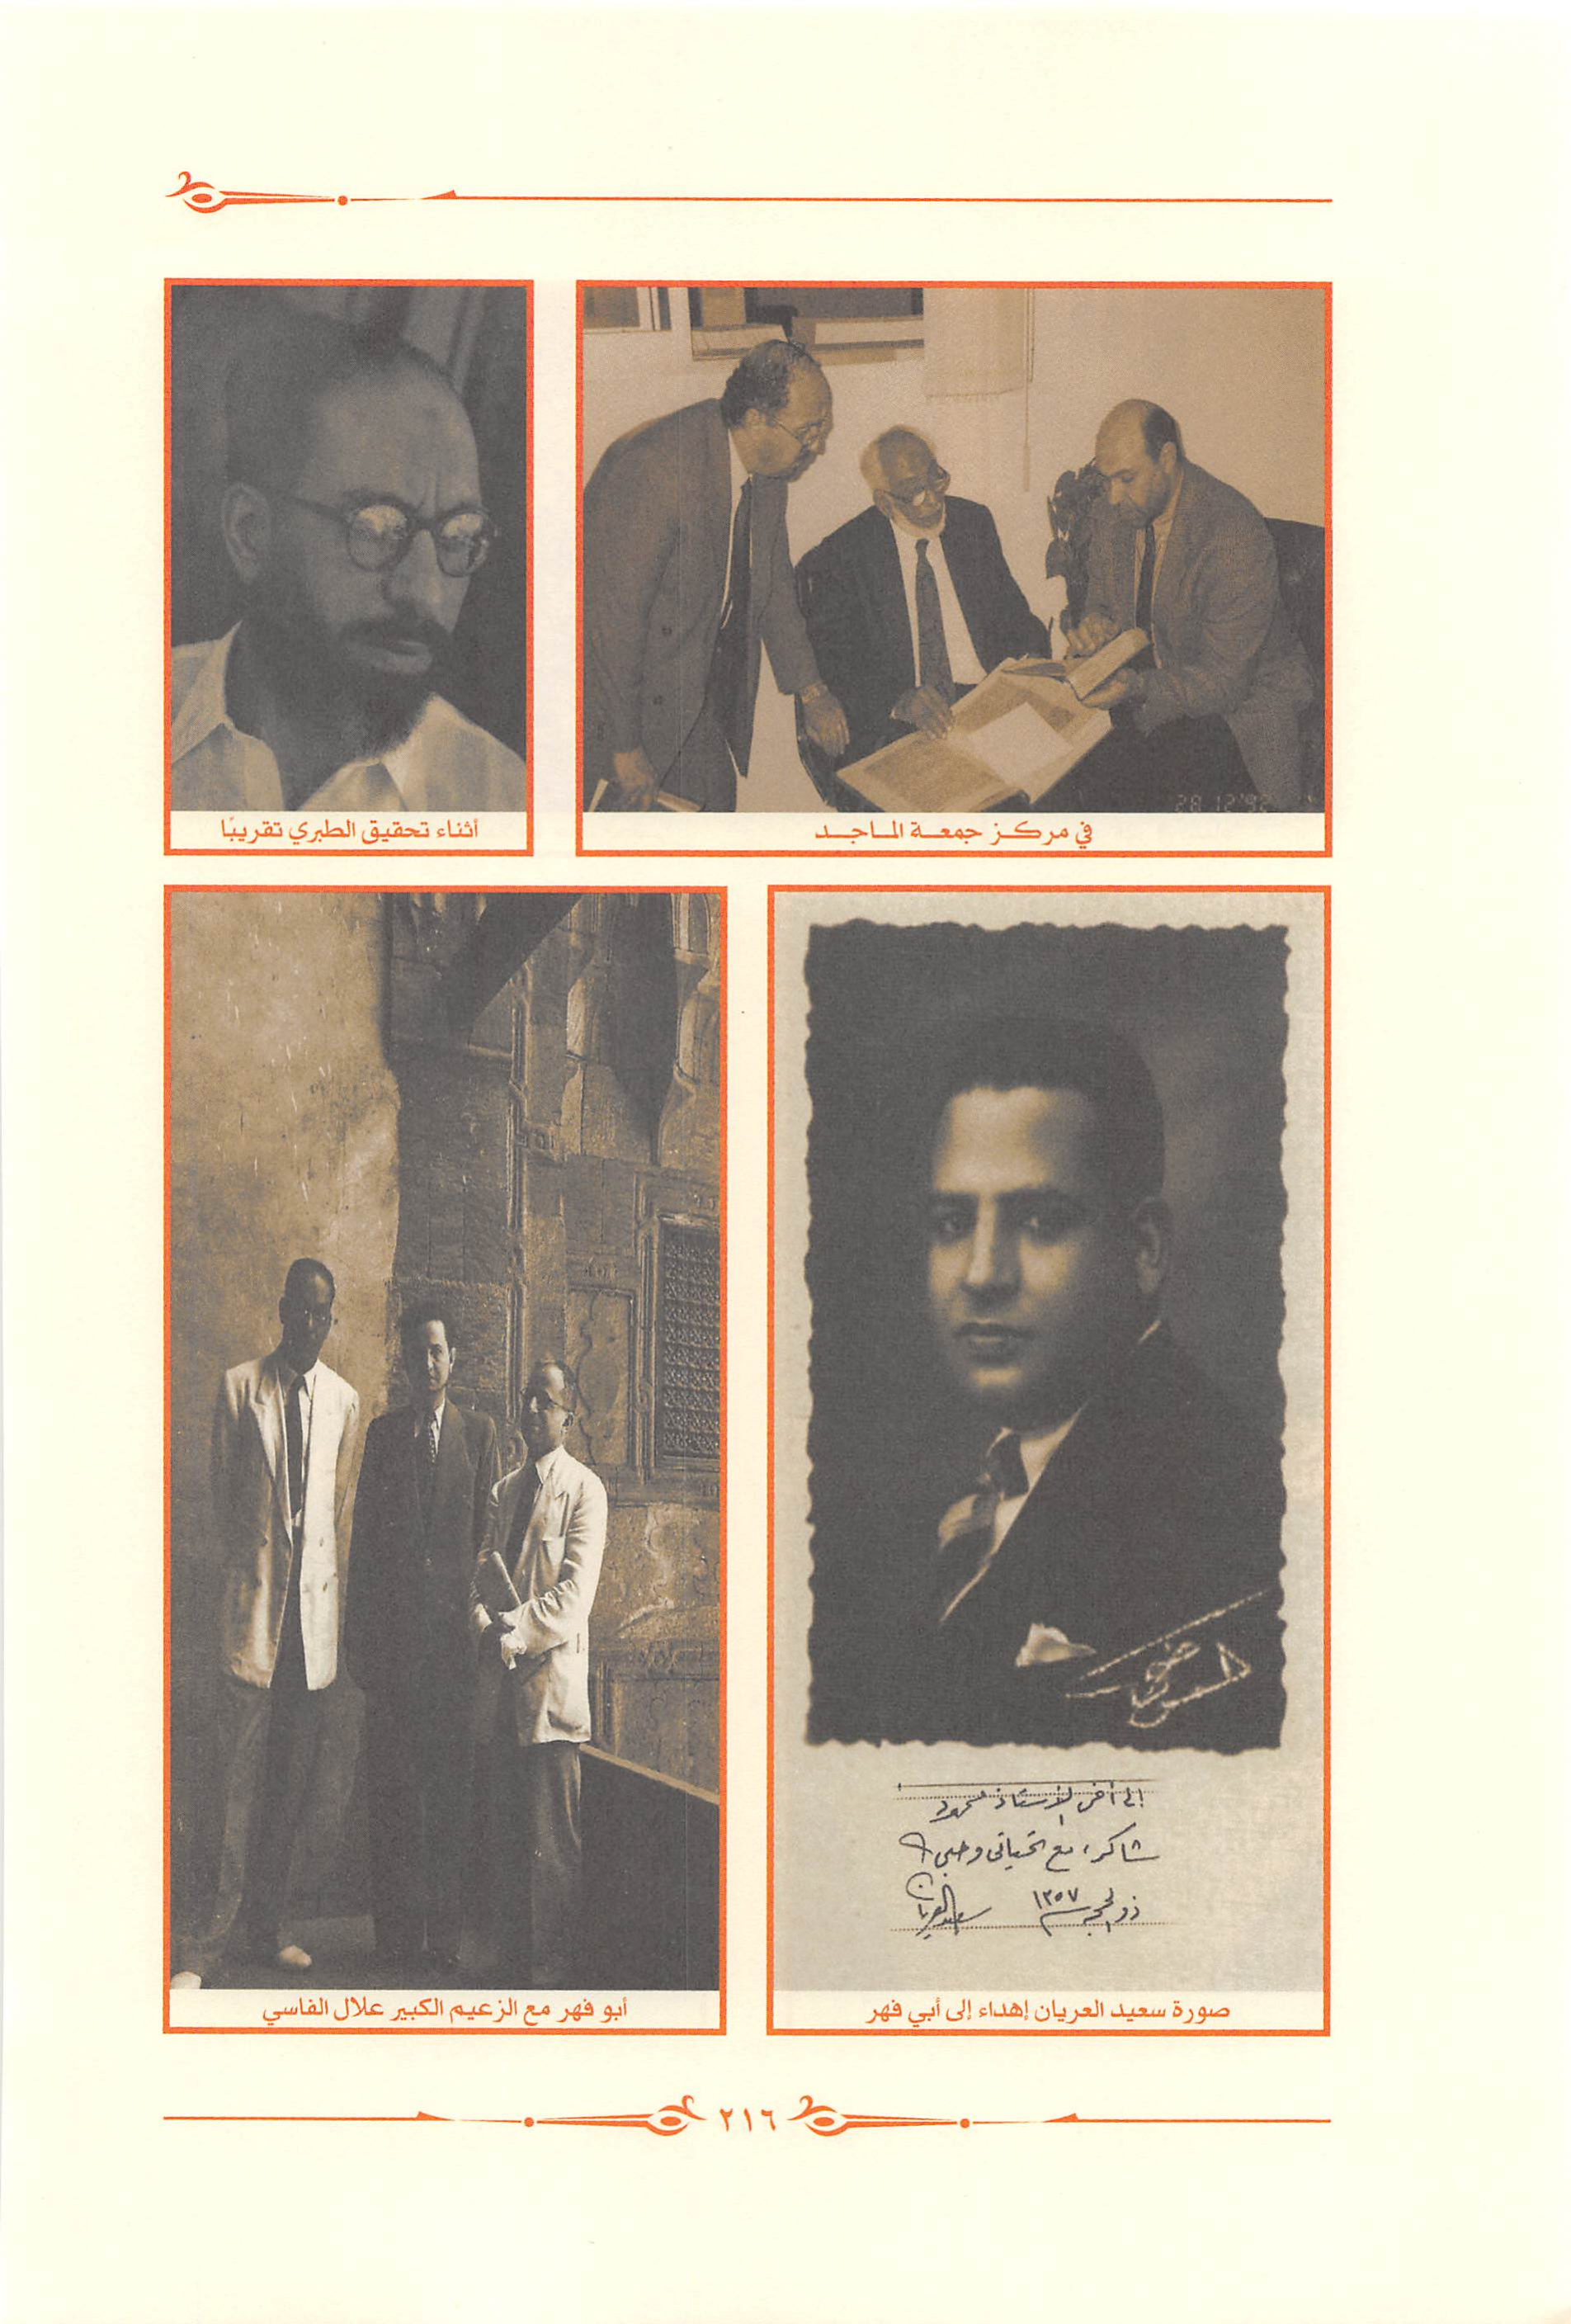 في مركز جمعة الماجد
28 12 '92
أثناء تحقيق الطبري تقريبًا
إلى أخى الأستاذ محمود
شاكر، مع تحياتى وحبى
ذو الحجة سنة ١٣٥٧ سعيد العريان
صورة سعيد العريان إهداء إلى أبي فهر
أبو فهر مع الزعيم الكبير علال الفاسي
٢١٦